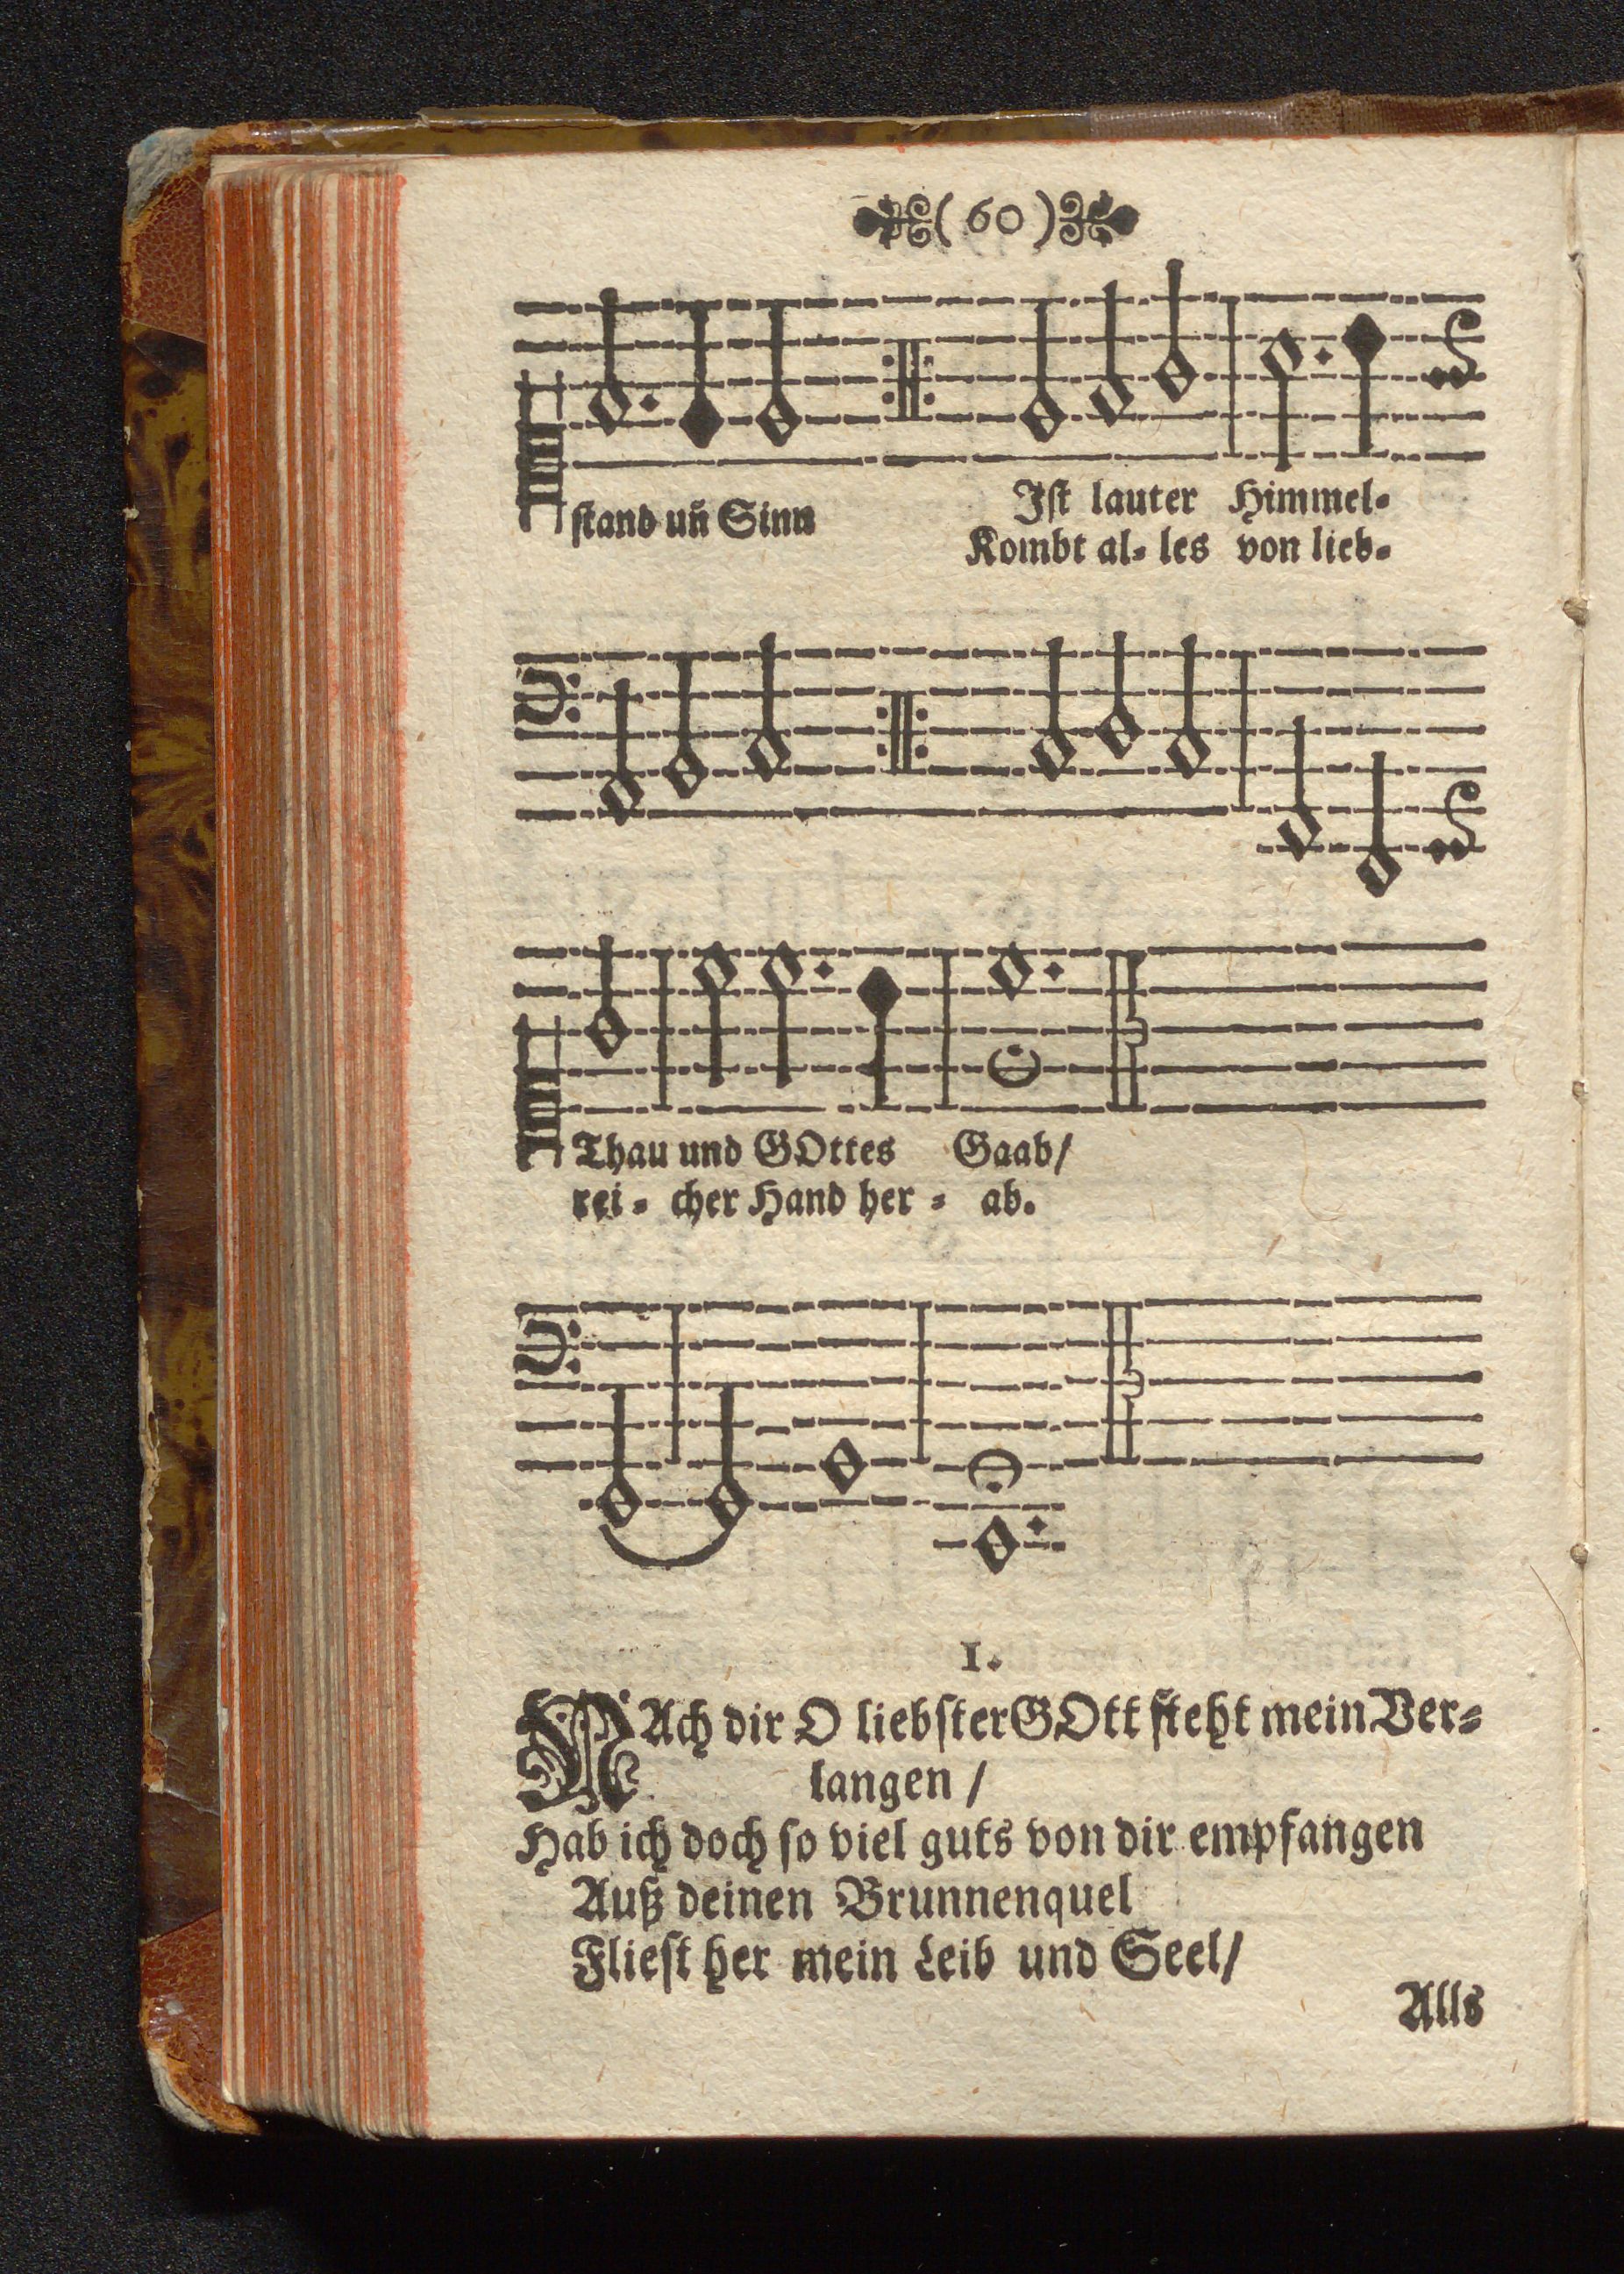 ( 60 )
stand uñ Sinn Ist lauter Himmel=
Kombt al= les von lieb=
Thau und GOttes Gaab/
rei= cher Hand her = ab.
1.
NAch dir O liebster GOtt steht mein Ver=
langen /
Hab ich doch so viel guts von dir empfangen
Auß deinen Brunnenquel
Fliest her mein Leib und Seel/
Alls